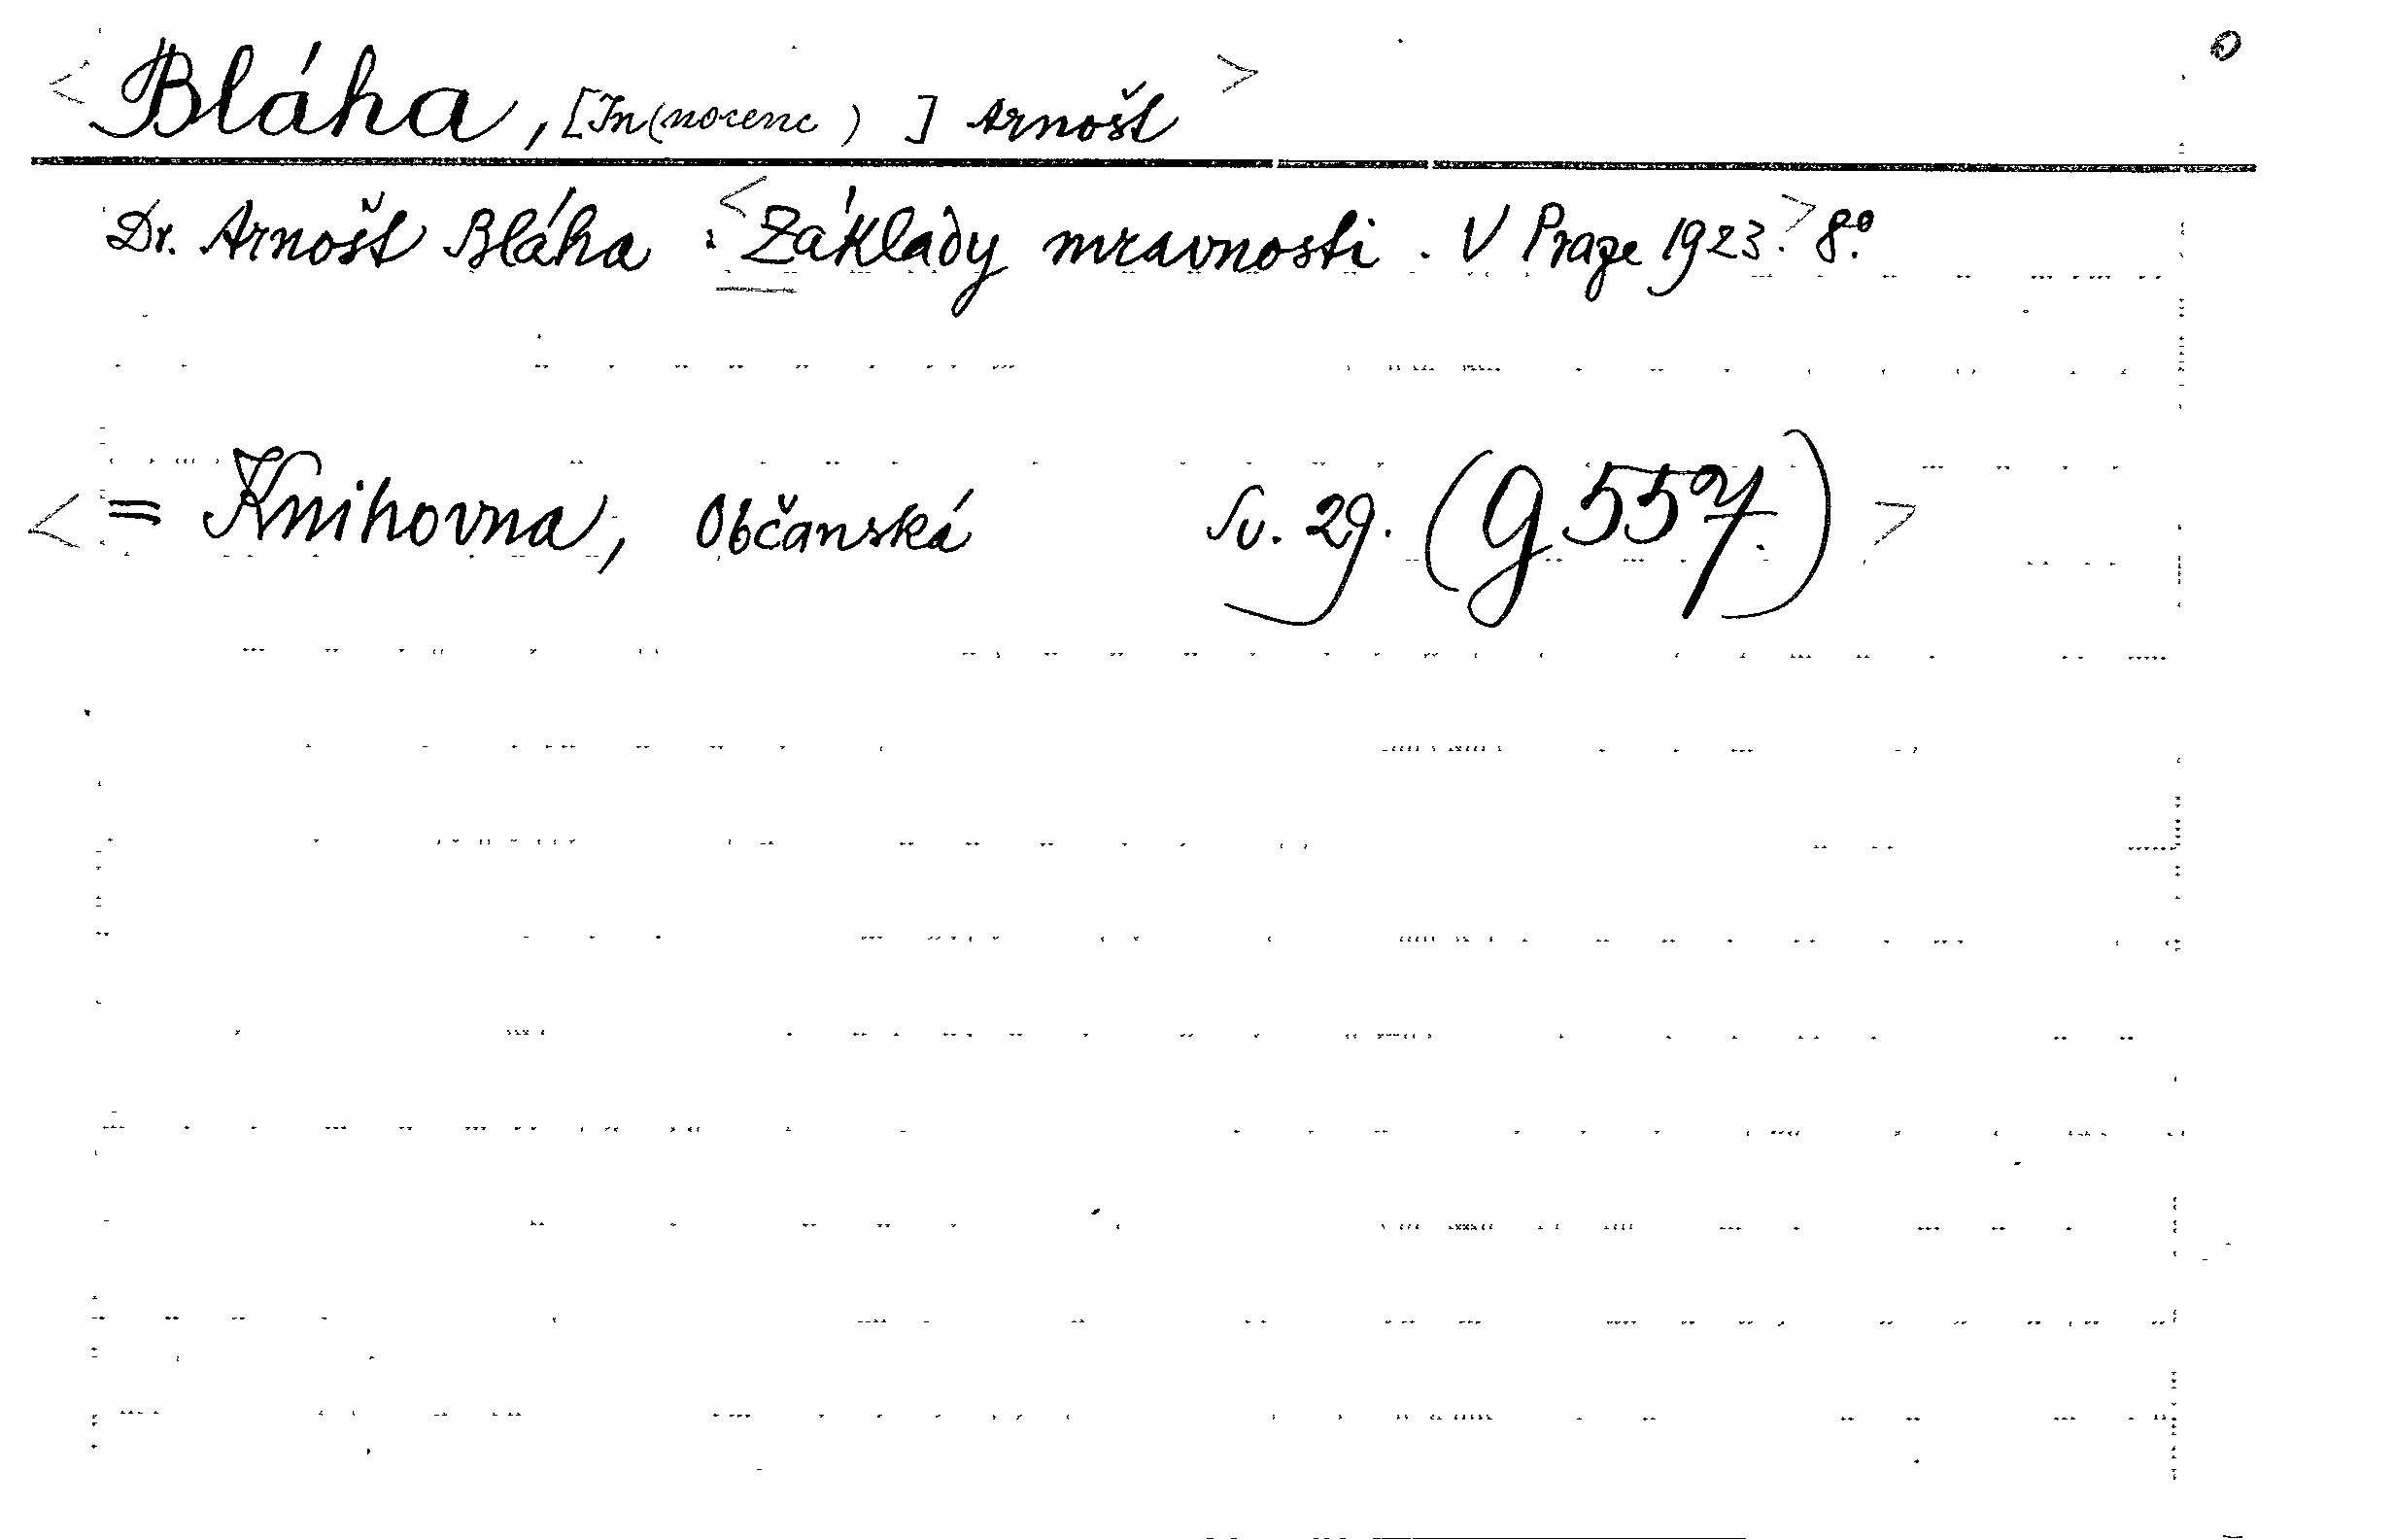 < Bláha, [In(nocenc)] Arnošt > o
Dr. Arnošt Bláha : < Základy mravnosti. V Praze 1923. > 8º.
< = Knihovna, Občanská Sv. 29. (G 557.) >